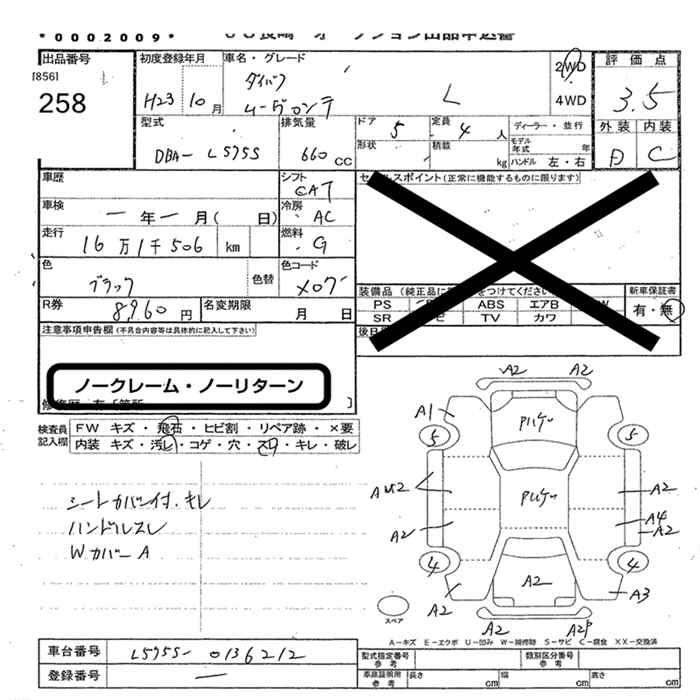 *0002009*
オークション出品申込書
出品番号
[856]
258
初度登録年月
H23 10月
車名・グレード
ダイハツ
ムーヴコンテ
L
2WD
4WD
評価点
3.5
外装 内装
D C
型式
DBA- L575S
排気量
660 CC
ドア 5
定員 4 人
形状
積載 kg
ディーラー・並行
モデル年式 年
ハンドル 左・右
車歴
シフト
CAT
セールスポイント(正常に機能するものに限ります)
車検
一年一月( 日)
冷房
AC
走行
16万1千506 km
燃料
G
色
ブラック
色替
色コード
X07
装備品
PS ABS エアB
SR TV カワ
新車保証書
有・無
R券
8,960円
名変期限
月 日
後日
注意事項申告欄(不具合内容等は具体的に記入して下さい)
ノークレーム・ノーリターン
検査員記入欄
FW キズ・飛石・ヒビ割・リペア跡・×要
内装 キズ・汚レ・コゲ・穴・スレ・キレ・破レ
シートカバー付.キレ
ハンドルスレ
Wカバー A
A2 A2
A1
5 5
A2
A2
A4
A2
A2
4 4
A2
A2
A3
スペア
A2
A-キズ E-エクボ U-凹み W-補修跡 S-サビ C-腐食 XX-交換済
車台番号
L575S- 0136212
登録番号
一
型式指定番号
参考
類別区分番号
参考
車庫証明用
参考
長さ cm
幅 cm
高さ cm